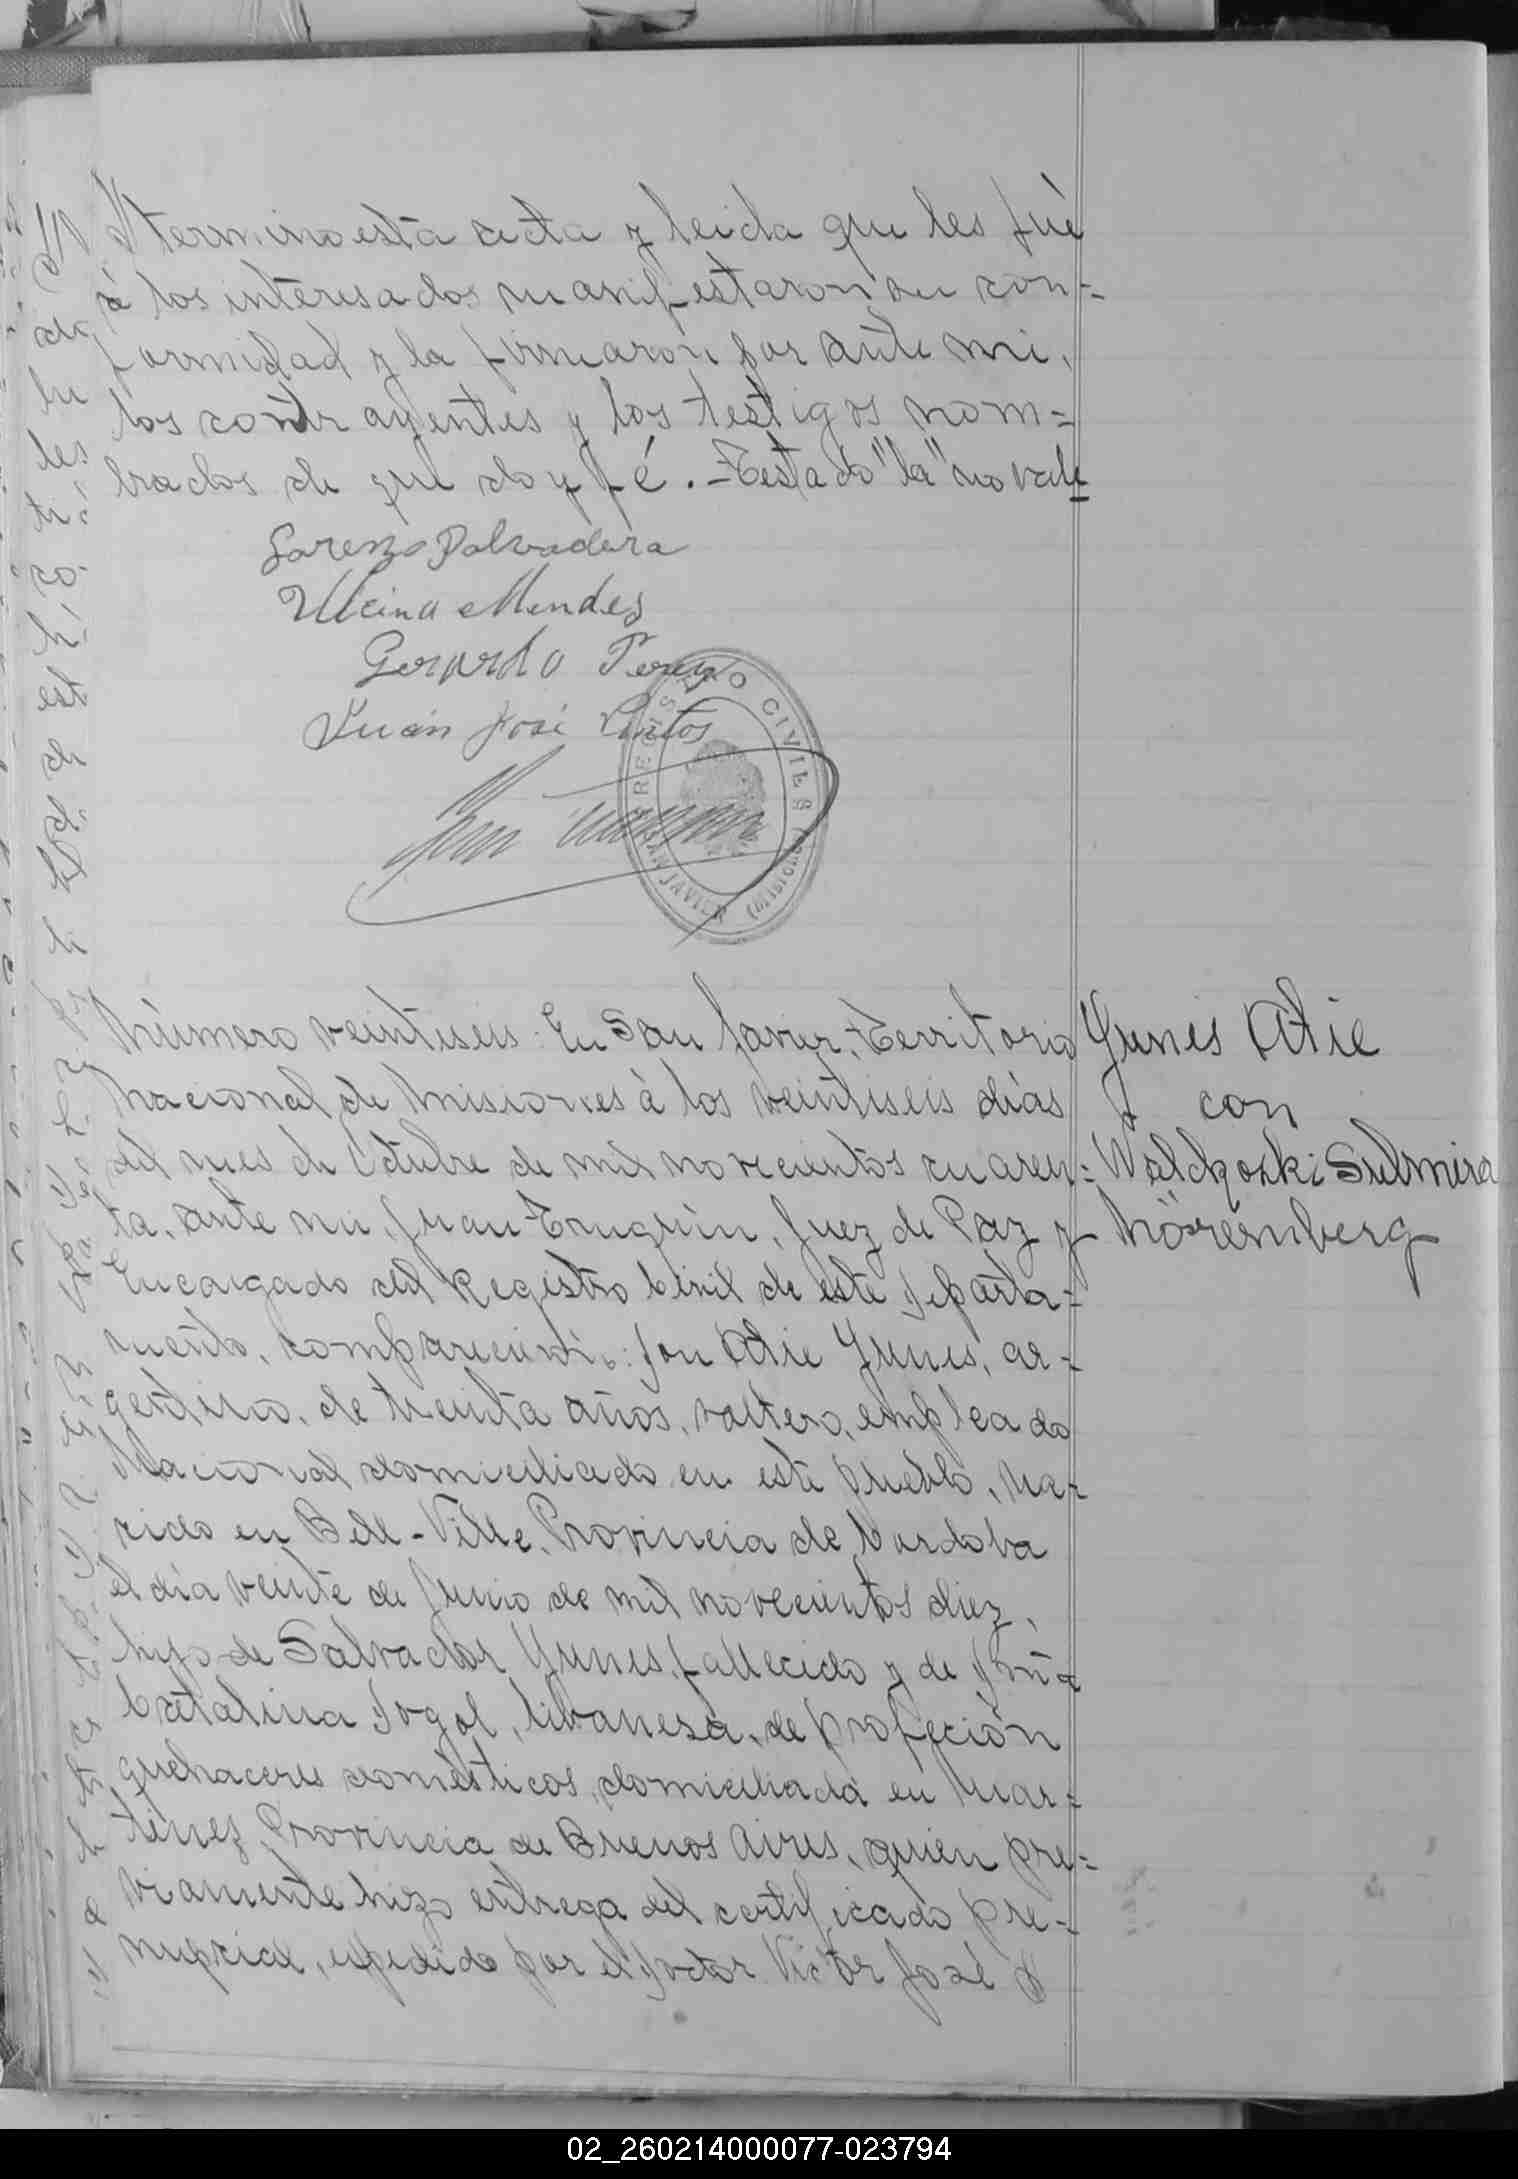 termino esta acta y leida que les fué
á los interesados manifestaron su con-
formidad y la firmaron por ante mi,
los contrayentes y los testigos nom=
brados de que doy fé.-Testado "la" no vale
Lorenzo Salvadera
Ulcina Mendes
Gerardo Perez
Juan José
REGISTRO CIVIL
SAN JAVIER (Misiones)
Número veintiseis: En San Javier, Territorio
Nacional de Misiones á los veintiseis días
del mes de Octubre de mil novecientos cuaren=
ta, ante mi, Juan Tonquin, Juez de Paz y
Encargado del Registro Civil de este Departa=
mento, comparecieron: Don Atie Yunes, ar=
gentino, de treinta años, soltero, empleado
Nacional domiciliado en este pueblo, na-
cido en Bell-Ville, Provincia de Cordoba
el día veinte de Junio de mil novecientos diez,
hijo de Salvador Yunes, fallecido y de Doña
Catalina Dogol, libanesa, de profeción
quehaceres domésticos, domiciliada en Mar=
tínez, Provincia de Buenos Aires, quien pre=
viamente hizo entrega del certificado pre-
nupcial, espedido por el Doctor Victor José
Yunes Atie
con
Walchoski Sulmira
Nöremberg
02_260214000077-023794